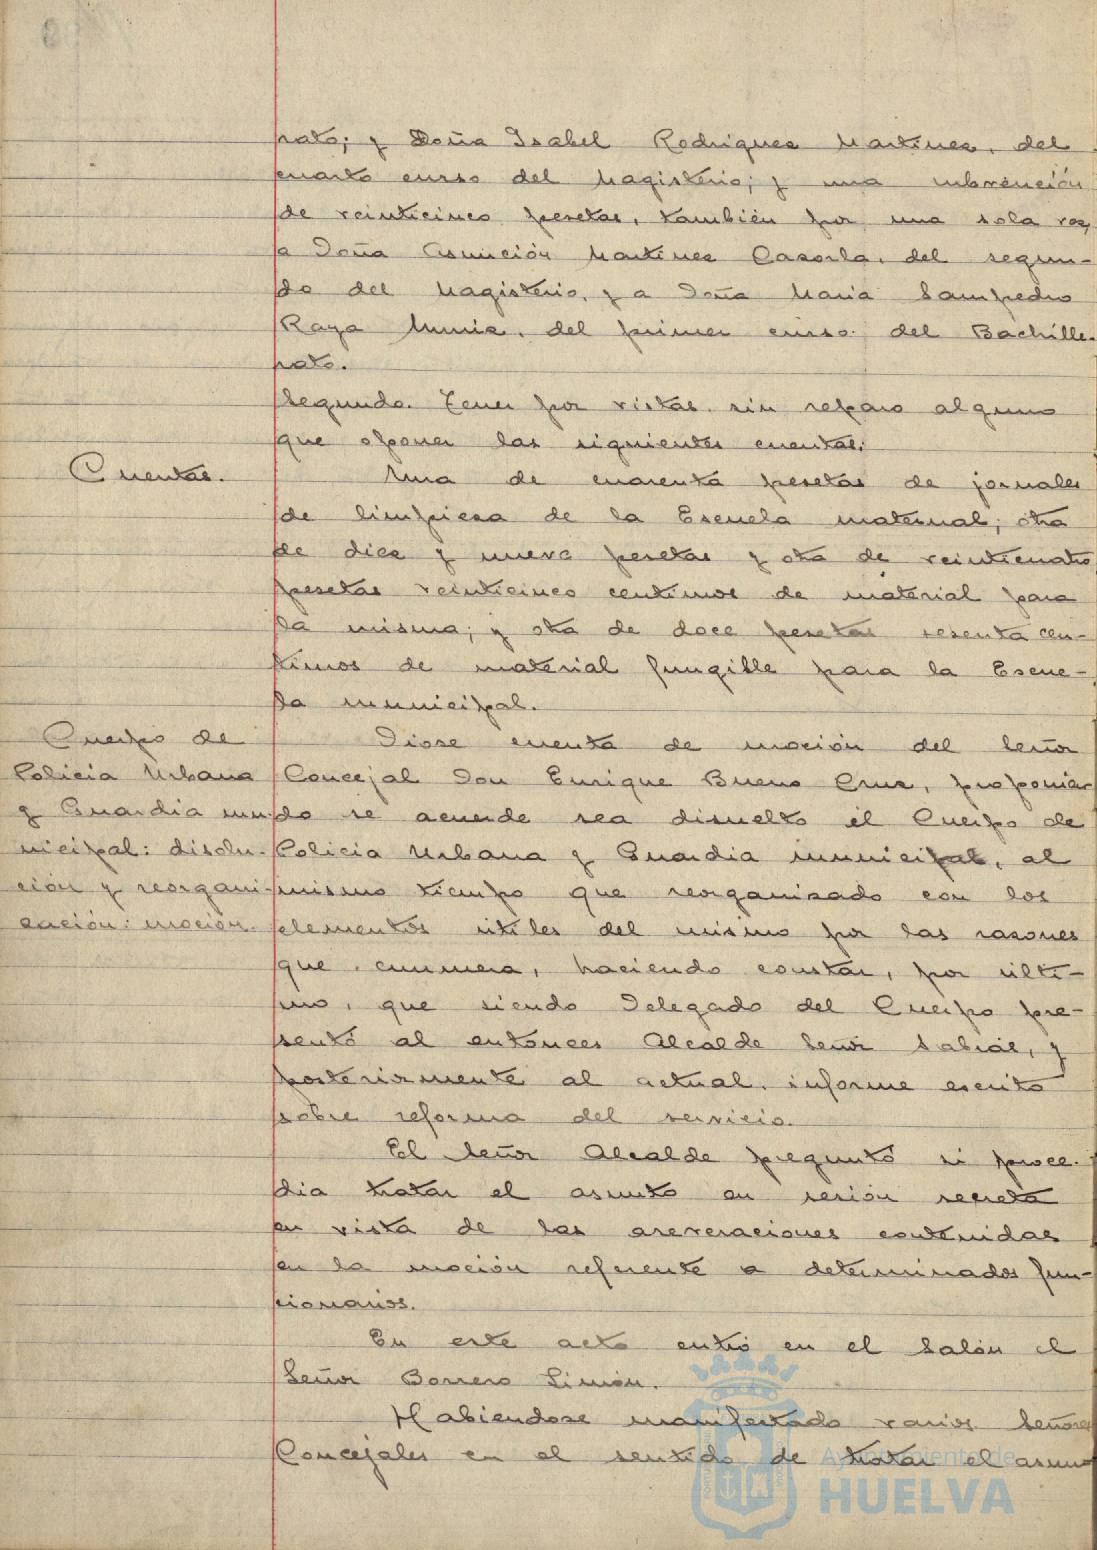 rato; y Doña Isabel Rodriguez Martinez, del
cuarto curso del Magisterio; y una subvención
de veinticinco pesetas, también por una sola vez,
a Doña Asunción Martinez Cazorla, del segun-
do del Magisterio, y a Doña Maria Sampedro
Raya Muniz, del primer curso del Bachille-
rato.
Segundo. Tener por vistas sin reparo alguno
que oponer las siguientes cuentas:
Cuentas.
Una de cuarenta pesetas de jornales
de limpieza de la Escuela maternal; otra
de diez y nueve pesetas y otra de veinticuatro
pesetas veinticinco centimos de material para
la misma; y otra de doce pesetas sesenta cen-
timos de material fungible para la Escue-
la municipal.
Cuerpo de
Policia Urbana
y Guardia mu-
nicipal: disolu-
ción y reorgani-
zación: moción.
Diose cuenta de moción del Señor
Concejal Don Enrique Bueno Cruz, proponien-
do se acuerde sea disuelto el Cuerpo de
Policia Urbana y Guardia municipal, al
mismo tiempo que reorganizado con los
elementos utiles del mismo por las razones
que enumera, haciendo constar, por ulti-
mo, que siendo Delegado del Cuerpo pre-
sentó al entonces Alcalde Señor Sabrás, y
posteriormente al actual, informe escrito
sobre reforma del servicio.
El Señor Alcalde preguntó si proce-
dia tratar el asunto en sesión secreta
en vista de las aseveraciones contenidas
en la moción referente a determinados fun-
cionarios.
En este acto entró en el Salón el
Señor Borrero Limón.
Habiendose manifestado varios Señores
Concejales en el sentido de tratar el asun-
Ayuntamiento de
HUELVA